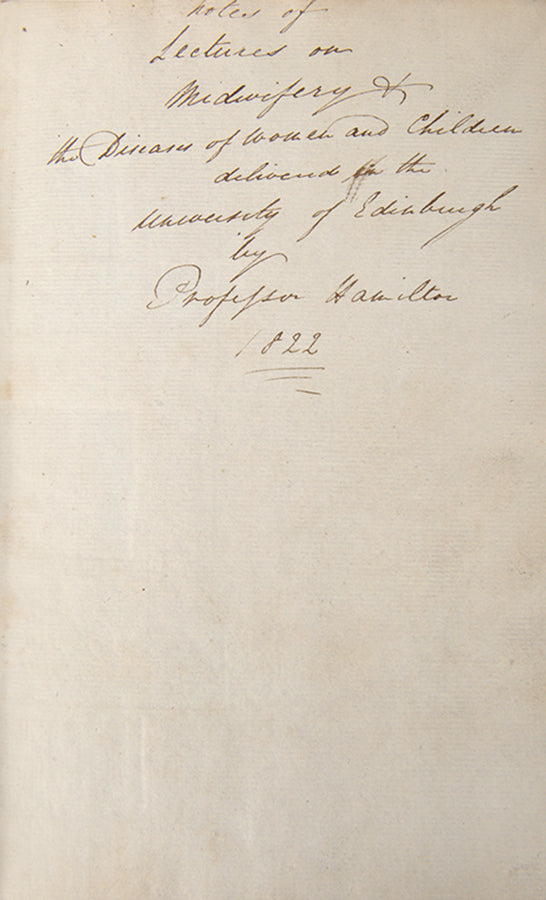 notes of
Lectures on
Midwifery &
the Diseases of Women and Children
delivered in the
University of Edinburgh
by
Professor Hamilton
1822